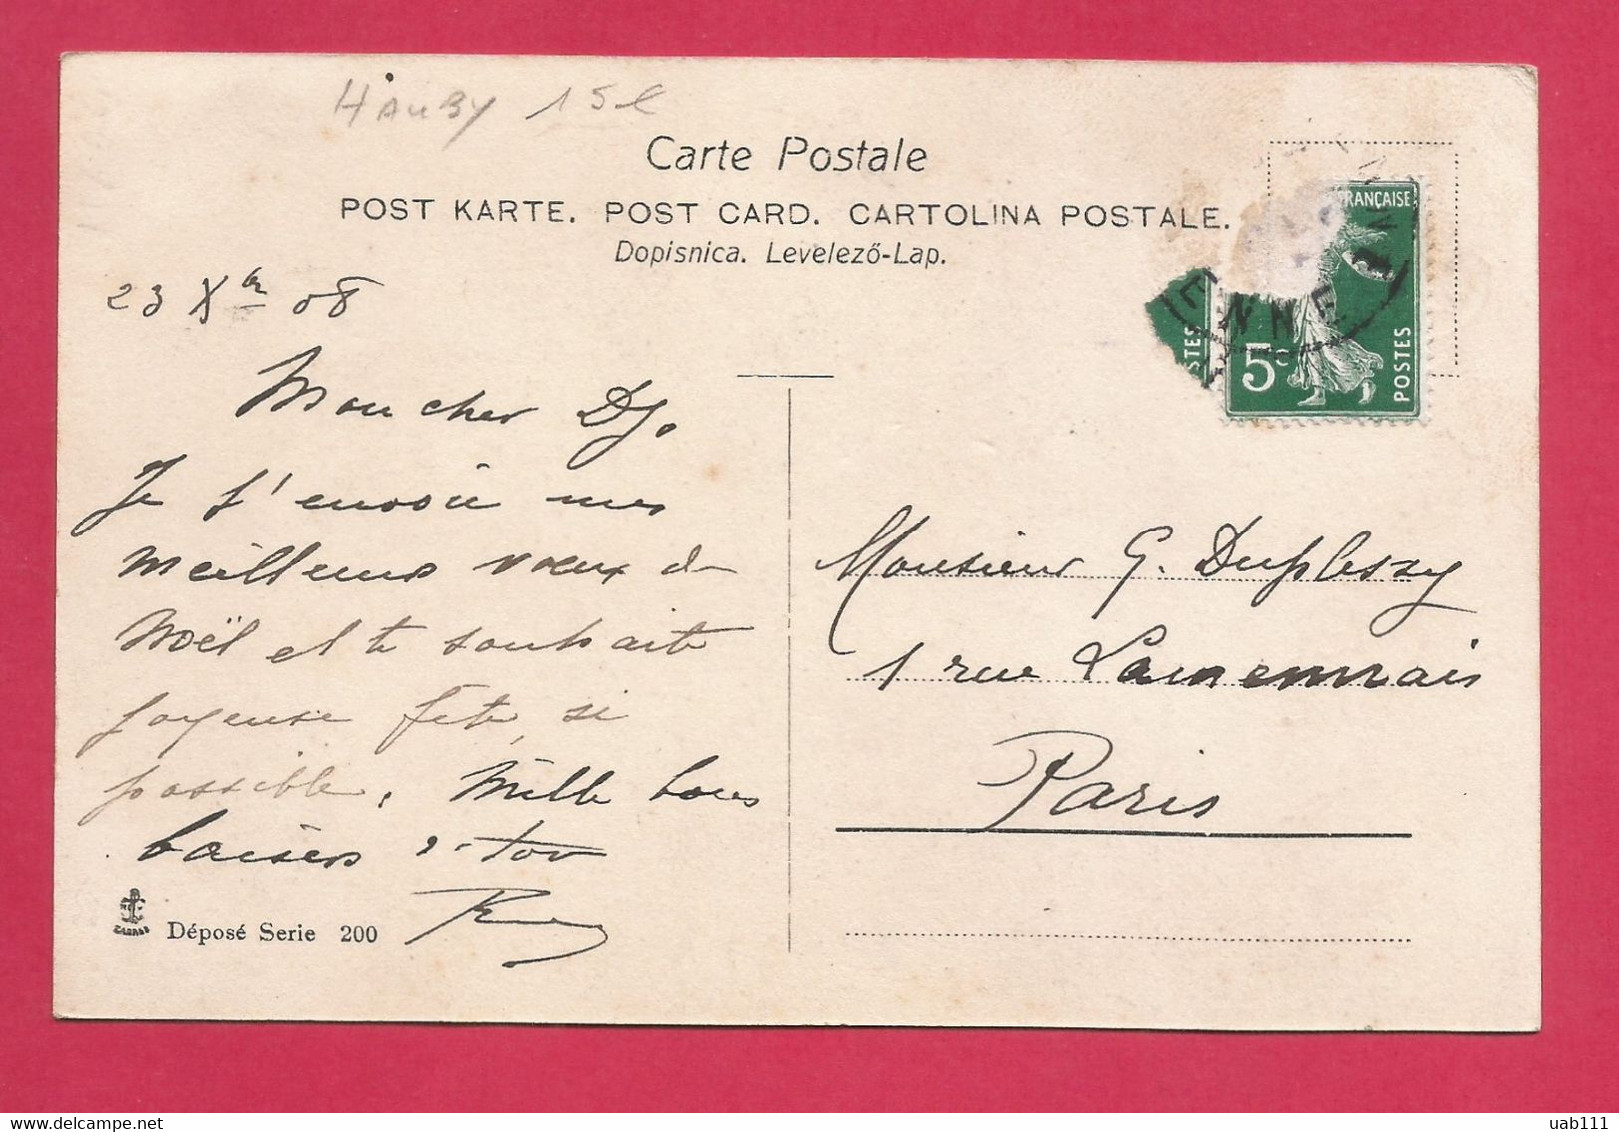 H'auBy 15 €
Carte Postale
POST KARTE. POST CARD. CARTOLINA POSTALE.
Dopisnica. Levelező-Lap.
RANÇAISE
ENNE
5c
POSTES
POSTES
23 Xbre 08
Mon cher Dy.
Je t'envoie mes
meilleurs voeux de
Noël et te souhaite
joyeuse fête, si
possible. Mille bons
baisers à toi
Monsieur G. Duplessy
1 rue Lamennais
Paris
Déposé Serie 200
uab111